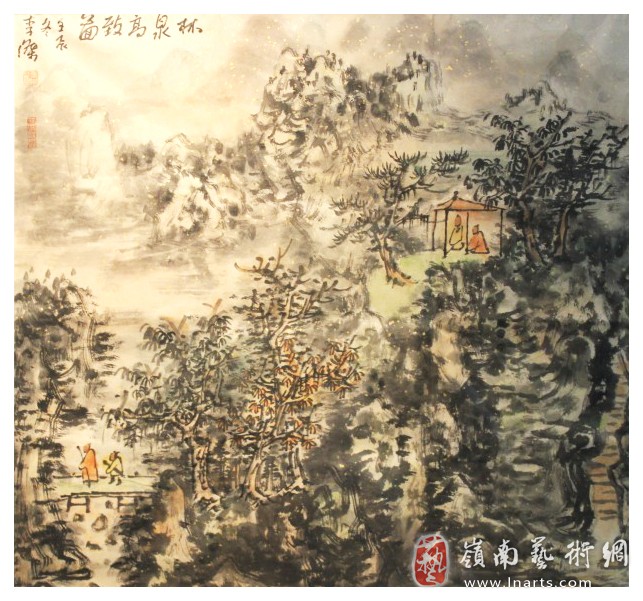 林泉高致啚
壬辰
冬
李
嶺南藝術網
www.lnarts.com